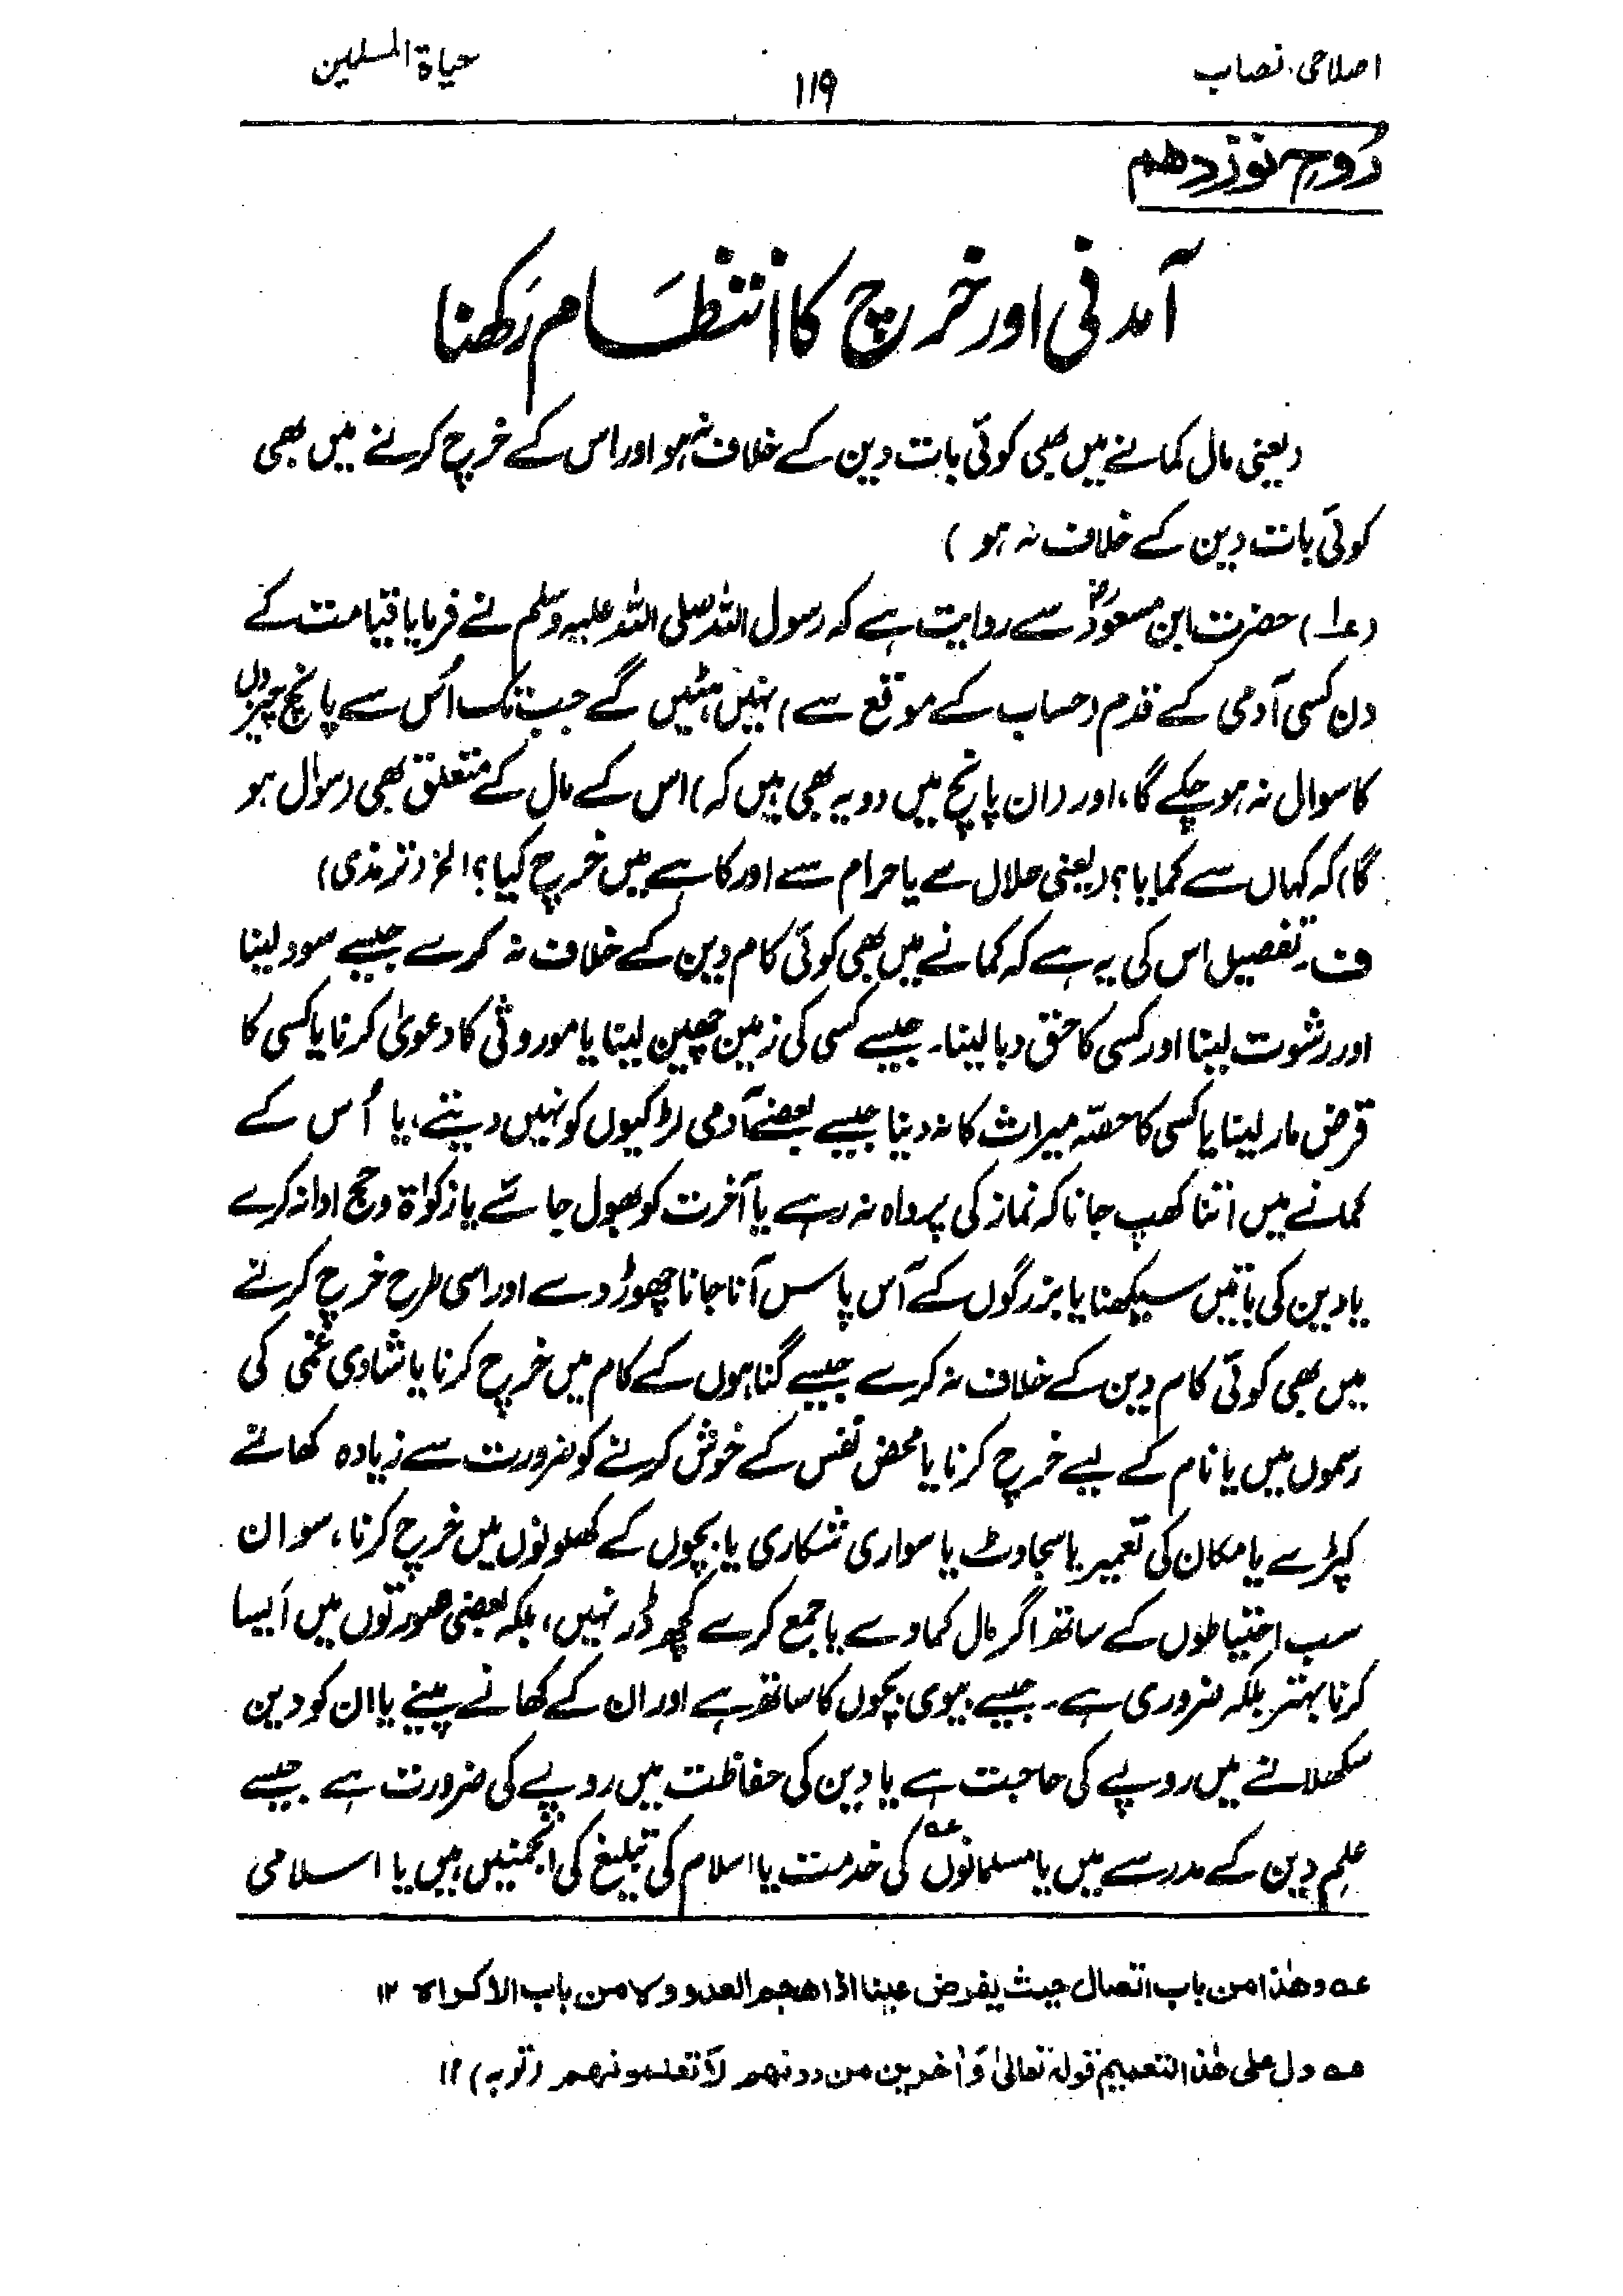 اصلاحی نصاب
۱۱۹
حیاۃ المسلمین
رُوحِ نوزدھم
آمدنی اور خرچ کا انتظام رکھنا
(یعنی مال کمانے میں بھی کوئی بات دین کے خلاف نہ ہو اور اس کے خرچ کرنے میں بھی
کوئی بات دین کے خلاف نہ ہو)
(۱) حضرت ابن مسعودؓ سے روایت ہے کہ رسول اللہ صلی اللہ علیہ وسلم نے فرمایا قیامت کے
دن کسی آدمی کے قدم (حساب کے موقع سے) نہیں ہٹیں گے جب تک اُس سے پانچ چیزوں
کا سوال نہ ہو چکے گا، اور (ان پانچ میں دو یہ بھی ہیں کہ) اس کے مال کے متعلق بھی (سوال ہو
گا) کہ کہاں سے کمایا؟ (یعنی حلال سے یا حرام سے اور کاہے میں خرچ کیا؟ الخ (ترمذی)
ف۔ تفصیل اس کی یہ ہے کہ کمانے میں بھی کوئی کام دین کے خلاف نہ کرے جیسے سود لینا
اور رشوت لینا اور کسی کا حق دبا لینا۔ جیسے کسی کی زمین چھین لینا یا موروثی کا دعویٰ کرنا یا کسی کا
قرض مار لینا یا کسی کا حصّہ میراث کا نہ دینا جیسے بعضے آدمی لڑکیوں کو نہیں دیتے، یا اُس کے
کمانے میں اتنا کھپ جانا کہ نماز کی پرواہ نہ رہے یا آخرت کو بھول جائے یا زکوٰۃ و حج ادا نہ کرے
یا دین کی باتیں سیکھنا یا بزرگوں کے آس پاس آنا جانا چھوڑ دے اور اسی طرح خرچ کرنے
میں بھی کوئی کام دین کے خلاف نہ کرے جیسے گناہوں کے کام میں خرچ کرنا یا شادی غمی کی
رسموں میں یا نام کے لیے خرچ کرنا یا محض نفس کے خوش کرنے کو ضرورت سے زیادہ کھانے
کپڑے یا مکان کی تعمیر یا سجاوٹ یا سواری شکاری یا بچوں کے کھلونوں میں خرچ کرنا، سو ان
سب احتیاطوں کے ساتھ اگر مال کماوے یا جمع کرے کچھ ڈر نہیں، بلکہ بعضی صورتوں میں ایسا
کرنا بہتر بلکہ ضروری ہے۔ جیسے بیوی بچوں کا ساتھ ہے اور ان کے کھانے پینے یا ان کو دین
سکھلانے میں روپے کی حاجت ہے یا دین کی حفاظت میں روپے کی ضرورت ہے جیسے
علمِ دین کے مدرسے ہیں یا مسلمانوں عہ کی خدمت یا اسلام کی تبلیغ کی انجمنیں ہیں یا اسلامی
عہ وھٰذا من باب اتصال حیث یفرض عینا اذا ھجم العدو ولا من باب الاکراہ ۱۲
عہ دل علی ھٰذا التعمیم قولہ تعالیٰ وَاٰخرین من دونھم لاَ تعلمونھم (توبہ) ۱۲